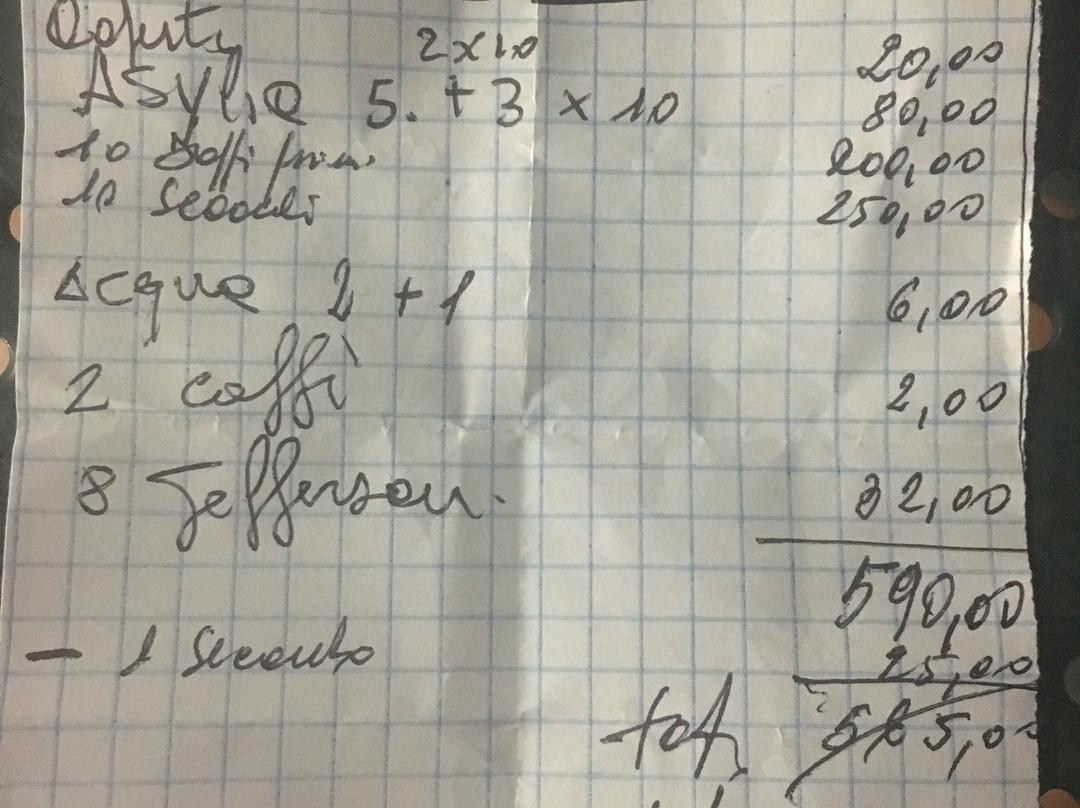 2x10 20,00
5. + 3 x 10 80,00
10 200,00
10 Secondi 250,00
Acqua 2 + 1 6,00
2 caffè 2,00
8 Jefferson. 32,00
590,00
- 1 Secondo 25,00
tot. 565,00